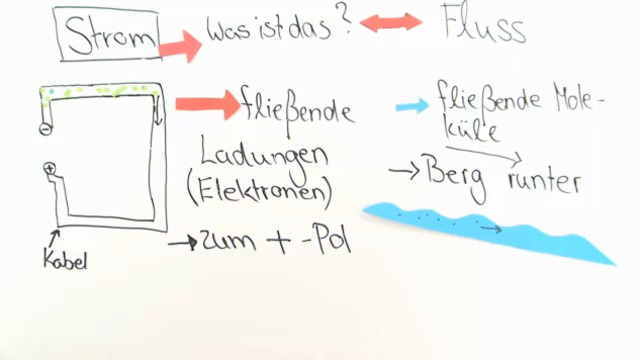 Strom
Was ist das?
Fluss
fließende
Ladungen
(Elektronen)
→ zum + -Pol
fließende Mole-
küle
→ Berg runter
−
+
Kabel